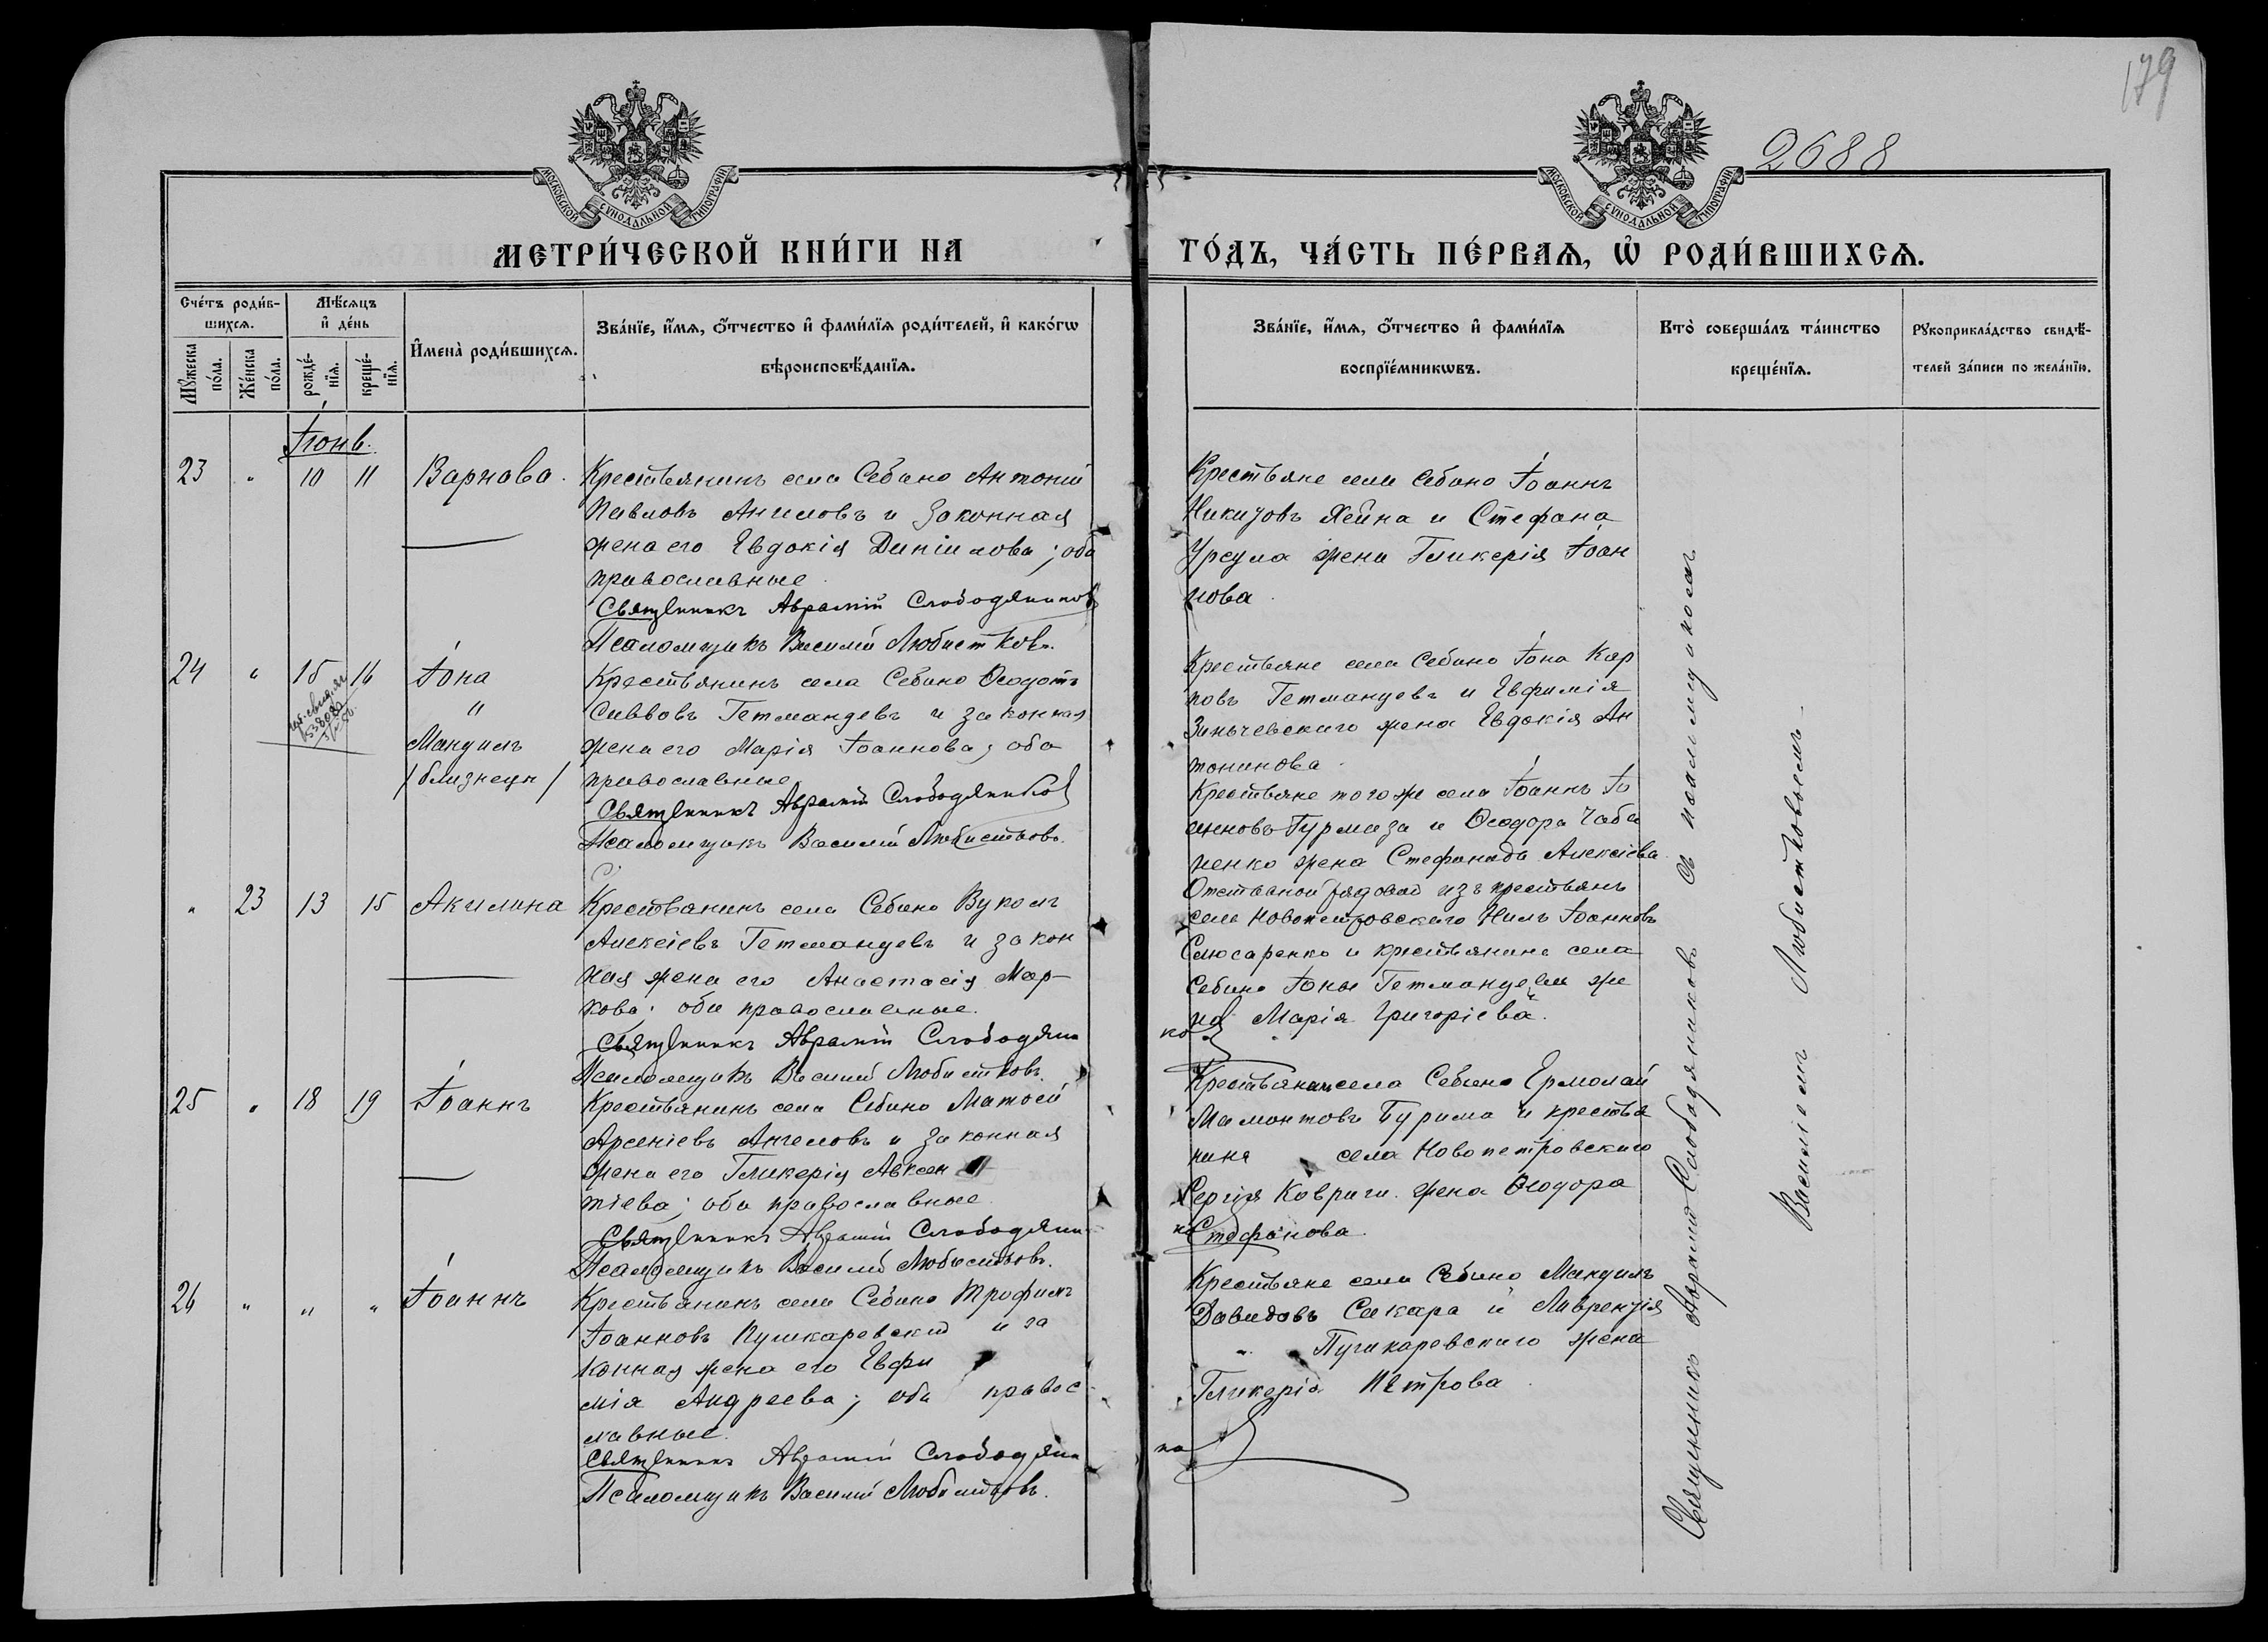 179
2688
МОСКОВСКОЙ СѴНОДАЛЬНОЙ ТИПОГРАФІИ
МОСКОВСКОЙ СѴНОДАЛЬНОЙ ТИПОГРАФІИ
МЕТРИ́ЧЕСКОЙ КНИ́ГИ НА
ГО́ДЪ, ЧА́СТЬ ПЕ́РВАѦ, Ѽ РОДИ́ВШИХСѦ.
Сче́тъ роди́в-
шихсѧ.
Мѣ́сяцъ
и҆ де́нь
Мꙋ́жеска по́ла.
Же́нска по́ла.
рожде́-
нїѧ.
креще́-
нїѧ.
И҆мена̀ роди́вшихсѧ.
Зва́нїе, и҆́мѧ, ѻ҆́тчество и҆ фами́лїѧ роди́телей, и҆ како́гѡ
вѣроисповѣ́данїѧ.
Зва́нїе, и҆́мѧ, ѻ҆́тчество и҆ фами́лїѧ
воспрїе́мникѡвъ.
Кто̀ соверша́лъ та́инство
креще́нїѧ.
Рꙋкоприкла́дство свидѣ́-
телей за́писи по жела́нїю.
Іюнь.
23 " 10 11 Варнава.
Крестьянинъ села Себино Антоній
Павловъ Ангеловъ и законная
жена его Евдокія Даніилова; оба
православные.
Священникъ Аврамій Слободяников
Псаломщикъ Василій Любистковъ.
Крестьяне села Себино Іоаннъ
Никитовъ Хейна и Стефана
Урсула жена Гликерія Іоан
нова.
24 " 15 16 Іона
"
Мануилъ
/близнецы/
Крестьянинъ села Себино Ѳеодотъ
Саввовъ Гетманцевъ и законная
жена его Марія Іоаннова; оба
православные
Священникъ Аврамій Слободяников
Псаломщикъ Василій Любистковъ
Крестьяне села Себино Іона Кар
повъ Гетманцевъ и Евфимія
Зинычевскаго жена Евдокія Ан
тонинова.
Крестьяне того же села Іоаннъ Іо
анновъ Гурмаза и Ѳеодора Чаба
ненко жена Стефанида Алексіева
" 23 13 15 Акилина
Крестьянинъ села Себино Вуколъ
Алексіевъ Гетманцевъ и закон
ная жена его Анастасія Мар-
кова; оба православные.
Священникъ Аврамій Слободяни
Псаломщикъ Василій Любистковъ.
Отставной рядовой изъ крестьянъ
села Новопетровскаго Нилъ Іоанновъ
Слюсаренко и крестьянина села
Себино Іоны Гетманцева же
на Марія Григоріева.
ков
25 " 18 19 Іоаннъ
Крестьянинъ села Себино Матѳей
Арсеніевъ Ангеловъ и законная
жена его Гликерія Авксен
тіева; оба православные.
Священникъ Аврамій Слободяни
Псаломщикъ Василій Любистковъ.
Крестьянинъ села Себино Ермолай
Мамонтовъ Бурима и крестья
нина села Новопетровскаго
Сергія Коврига жена Ѳеодора
Стефанова.
ков
26 " " " Іоаннъ
Крестьянинъ села Себино Трофимъ
Іоанновъ Пушкаревскій и за
конная жена его Евфи
мія Андреева; оба правос
лавные.
Священникъ Аврамій Слободяни
Псаломщикъ Василій Любистковъ.
Крестьяне села Себино Мануилъ
Давидовъ Сакара и Лаврентія
" Пушкаревскаго жена
Гликерія Петрова.
ков
Священникъ Аврамій Слободяниковъ съ псаломщикомъ
Василіемъ Любистковымъ.